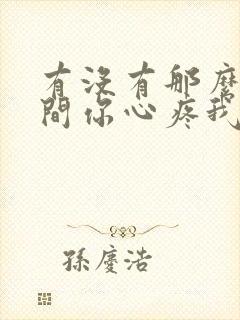 有沒有那麼
間你心疼我
孫慶浩